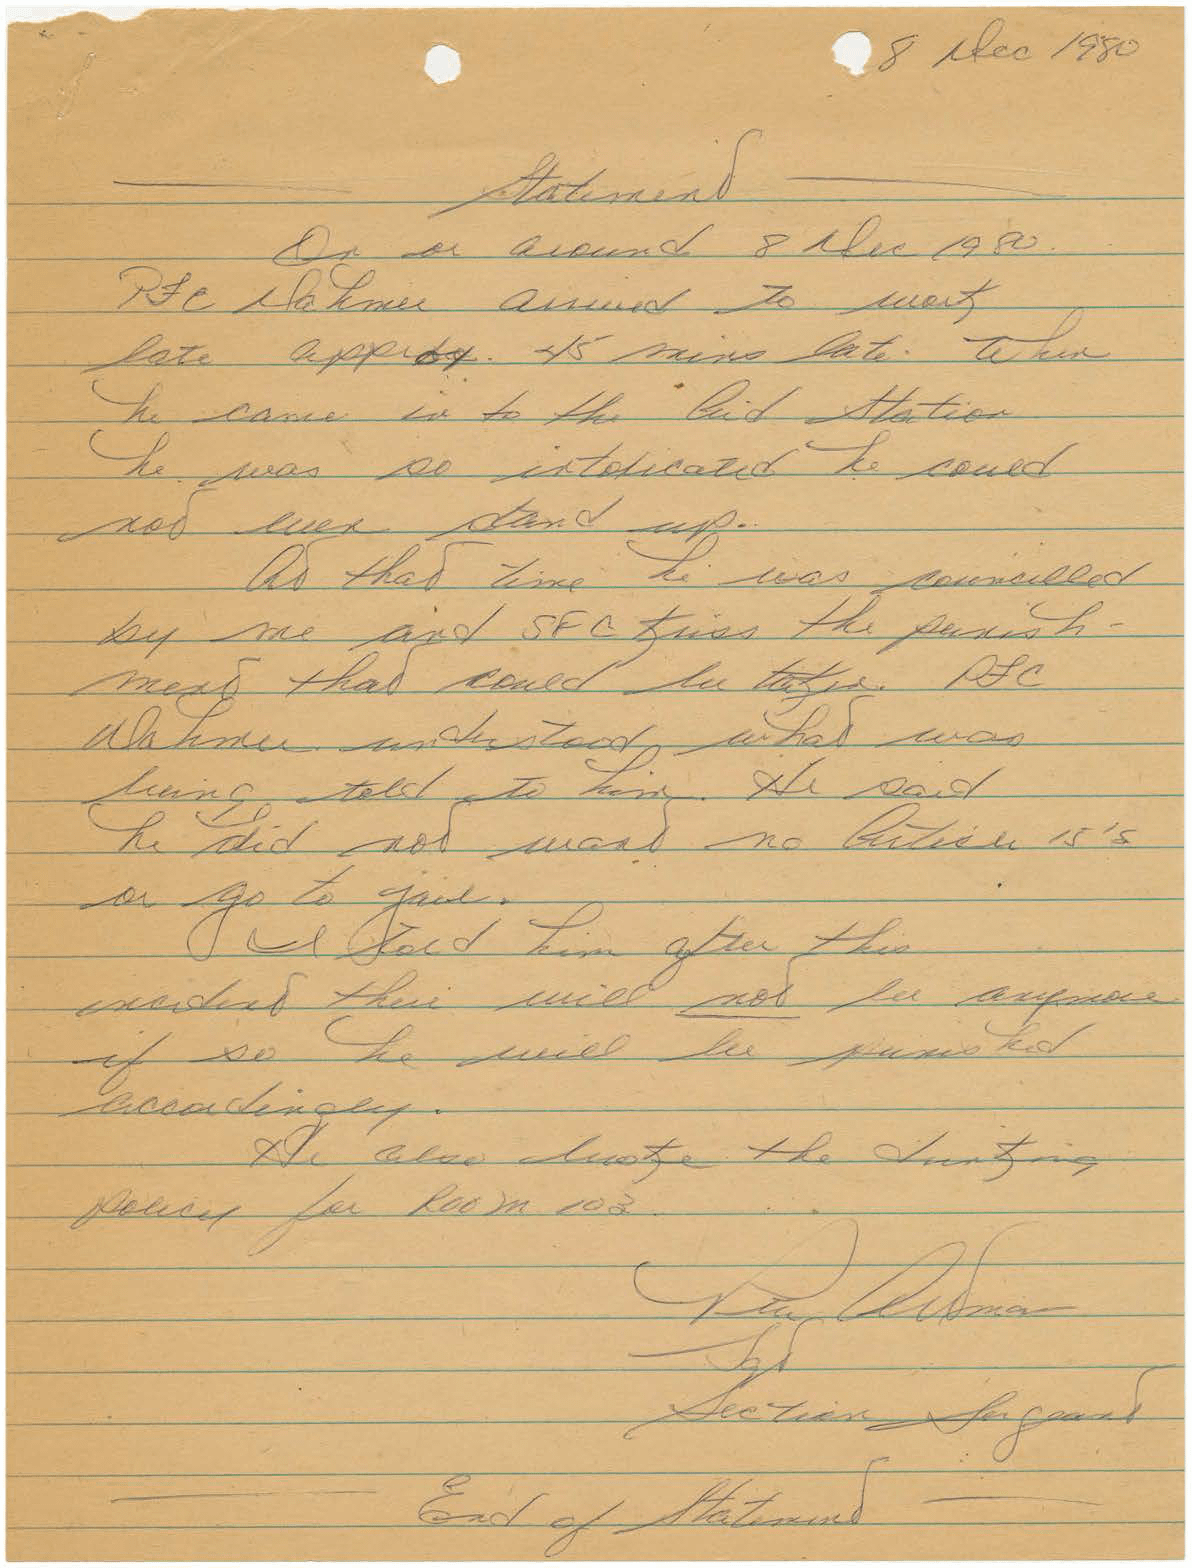 8 Dec 1980
Statement
On or around 8 Dec 1980.
PFC Dahmer arrived to work
late approx. 45 mins late. When
he came in to the Aid Station
he was so intoxicated he could
not even stand up.
At that time he was councilled
by me and SFC the punish-
ment that could be taken. PFC
Dahmer understood what was
being told to him. He said
he did not want no Article 15's
or go to jail.
I told him after this
incident their will not be anymore
if so he will be punished
accordingly.
He also broke the drinking
policy for Room 103.
Sgt
Section Sergeant
End of Statement